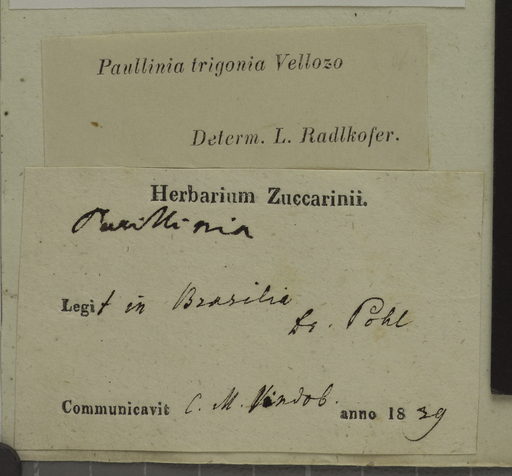 Paullinia trigonia Vellozo
Determ. L. Radlkofer.
Herbarium Zuccarinii.
Paullinia
Legit in Brasilia
Dr. Pohl
Communicavit C. M. Vindob. anno 1839